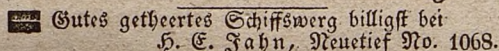 Gutes getheertes Schiffswerg billigst bei
H. E. Jahn, Neuetief No. 1068.